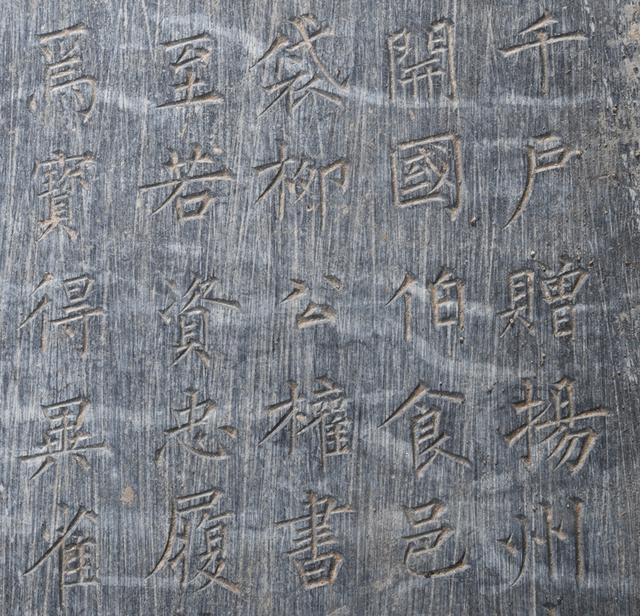 千户贈揚州
開國伯食邑
袋柳公權書
至若資忠履
爲寳得異雀